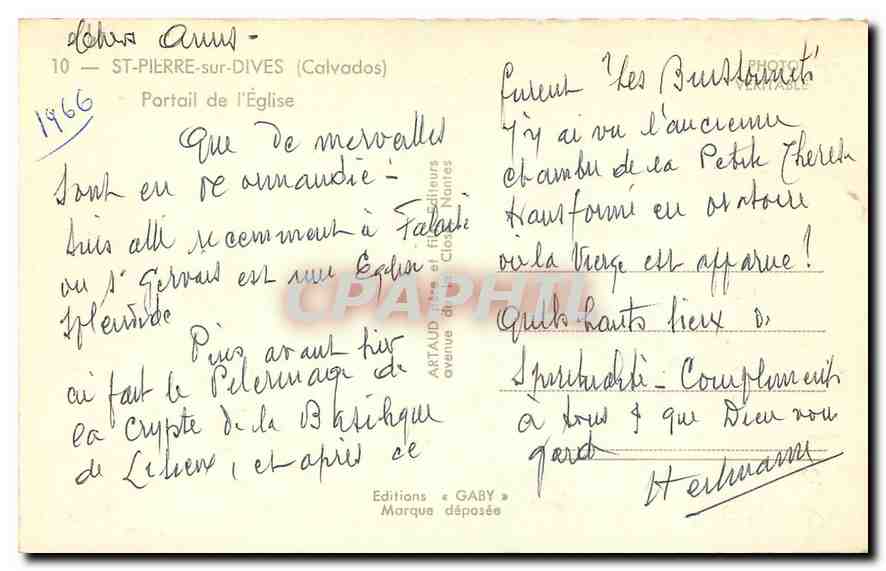 chers Amis -
10 — ST-PIERRE-sur-DIVES (Calvados)
Portail de l'Église
1966
Que de merveilles
sont en Normandie -
suis allé récemment à Falaise
ou St Gervais est une Eglise
splendide
Puis avant hier
ai fait le Pélerinage de
la Crypte de la Basilique
de Lisieux, et après ce
furent "Les Buissonnets"
j'y ai vu l'ancienne
chambre de la Petite Therese
transformé en oratoire
où la Vierge est apparue!
Quels hauts lieux de
Spiritualité - Compliments
à tous & que Dieu vous
garde
PHOTO
VÉRITABLE
ARTAUD père et fils Éditeurs
avenue du Closset Nantes
Editions « GABY »
Marque déposée
CPAPHIL